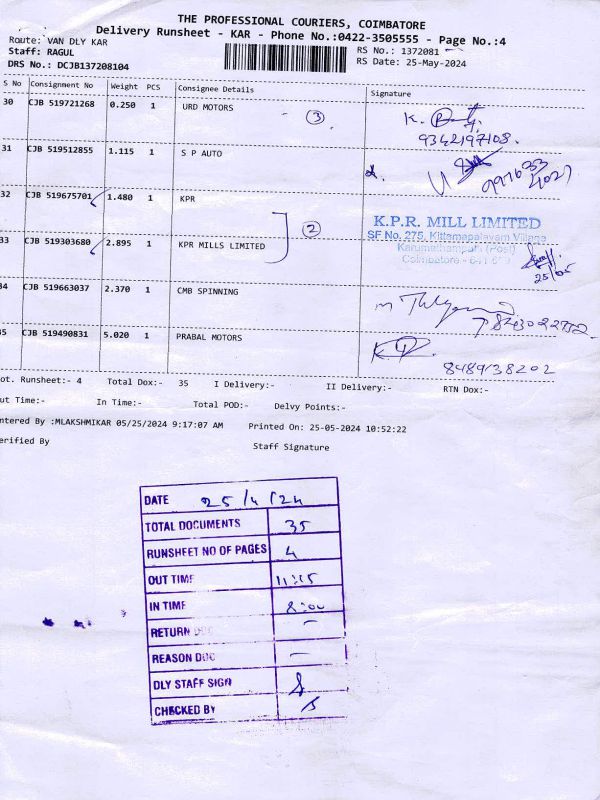 THE PROFESSIONAL COURIERS, COIMBATORE
Delivery Runsheet - KAR - Phone No.:0422-3505555 - Page No.:4
Route: VAN DLY KAR
Staff: RAGUL
RS No.: 1372081
DRS No.: DCJB137208104
RS Date: 25-May-2024
S No Consignment No Weight PCS Consignee Details Signature
30 CJB 519721268 0.250 1 URD MOTORS 3 K.
9342197108.
31 CJB 519512855 1.115 1 S P AUTO
32 CJB 519675701 1.480 1 KPR
K.P.R. MILL LIMITED
SF No. 275, Kittampalayam Village
33 CJB 519303680 2.895 1 KPR MILLS LIMITED 2
Karumathampatti (Post)
Coimbatore - 641 659
25/05
34 CJB 519663037 2.370 1 CMB SPINNING
35 CJB 519490831 5.020 1 PRABAL MOTORS
8489138202
ot. Runsheet:- 4 Total Dox:- 35 I Delivery:- II Delivery:- RTN Dox:-
ut Time:- In Time:- Total POD:- Delvy Points:-
ntered By :MLAKSHMIKAR 05/25/2024 9:17:07 AM Printed On: 25-05-2024 10:52:22
erified By Staff Signature
DATE 25/4/24
TOTAL DOCUMENTS 35
RUNSHEET NO OF PAGES 4
OUT TIME 11:15
IN TIME 8:00
RETURN DOC —
REASON DOC —
DLY STAFF SIGN
CHECKED BY